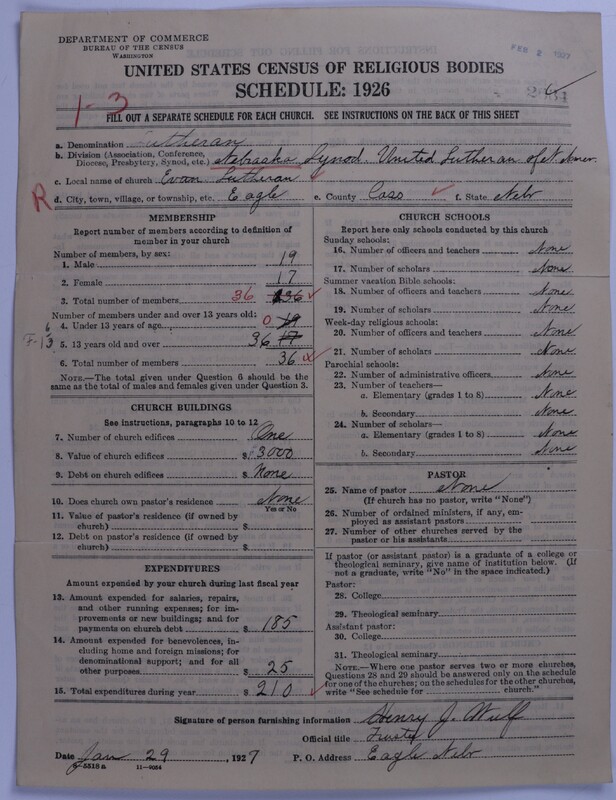 DEPARTMENT OF COMMERCE
BUREAU OF THE CENSUS
WASHINGTON
FEB 2 1927
UNITED STATES CENSUS OF RELIGIOUS BODIES
SCHEDULE: 1926
1-3
FILL OUT A SEPARATE SCHEDULE FOR EACH CHURCH. SEE INSTRUCTIONS ON THE BACK OF THIS SHEET
a. Denomination Lutheran
b. Division (Association, Conference, Diocese, Presbytery, Synod, etc.) Nebraska Synod. United Lutheran of N. Amer.
c. Local name of church Evan Lutheran
R
d. City, town, village, or township, etc. Eagle e. County Cass f. State Nebr
MEMBERSHIP
Report number of members according to definition of
member in your church
Number of members, by sex:
1. Male 19
2. Female 17
3. Total number of members 36 36
Number of members under and over 13 years old:
4. Under 13 years of age 0 19
5. 13 years old and over 36 17
6. Total number of members 36
NOTE.—The total given under Question 6 should be
the same as the total of males and females given under Question 3.
CHURCH BUILDINGS
See instructions, paragraphs 10 to 12
7. Number of church edifices One
8. Value of church edifices $3000
9. Debt on church edifices $ None
10. Does church own pastor's residence None
Yes or No
11. Value of pastor's residence (if owned by
church) $
12. Debt on pastor's residence (if owned by
church) $
EXPENDITURES
Amount expended by your church during last fiscal year
13. Amount expended for salaries, repairs,
and other running expenses; for im-
provements or new buildings; and for
payments on church debt $ 185
14. Amount expended for benevolences, in-
cluding home and foreign missions; for
denominational support; and for all
other purposes $ 25
15. Total expenditures during year $ 210
CHURCH SCHOOLS
Report here only schools conducted by this church
Sunday schools:
16. Number of officers and teachers None
17. Number of scholars None
Summer vacation Bible schools:
18. Number of officers and teachers None
19. Number of scholars None
Week-day religious schools:
20. Number of officers and teachers None
21. Number of scholars None
Parochial schools:
22. Number of administrative officers None
23. Number of teachers—
a. Elementary (grades 1 to 8) None
b. Secondary None
24. Number of scholars—
a. Elementary (grades 1 to 8) None
b. Secondary None
PASTOR
25. Name of pastor None
(If church has no pastor, write "None")
26. Number of ordained ministers, if any, em-
ployed as assistant pastors
27. Number of other churches served by the
pastor or his assistants
If pastor (or assistant pastor) is a graduate of a college or
theological seminary, give name of institution below. (If
not a graduate, write "No" in the space indicated.)
Pastor:
28. College
29. Theological seminary
Assistant pastor:
30. College
31. Theological seminary
NOTE.—Where one pastor serves two or more churches,
Questions 28 and 29 should be answered only on the schedule
for one of the churches; on the schedules for the other churches,
write "See schedule for church."
Signature of person furnishing information Henry J. Wulf
Official title Trustee
Date Jan 29, 1927 P. O. Address Eagle Nebr
8-5518 a 11-9054